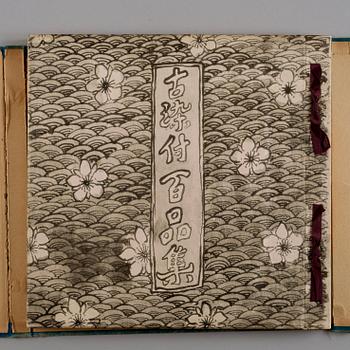 古染付百品集